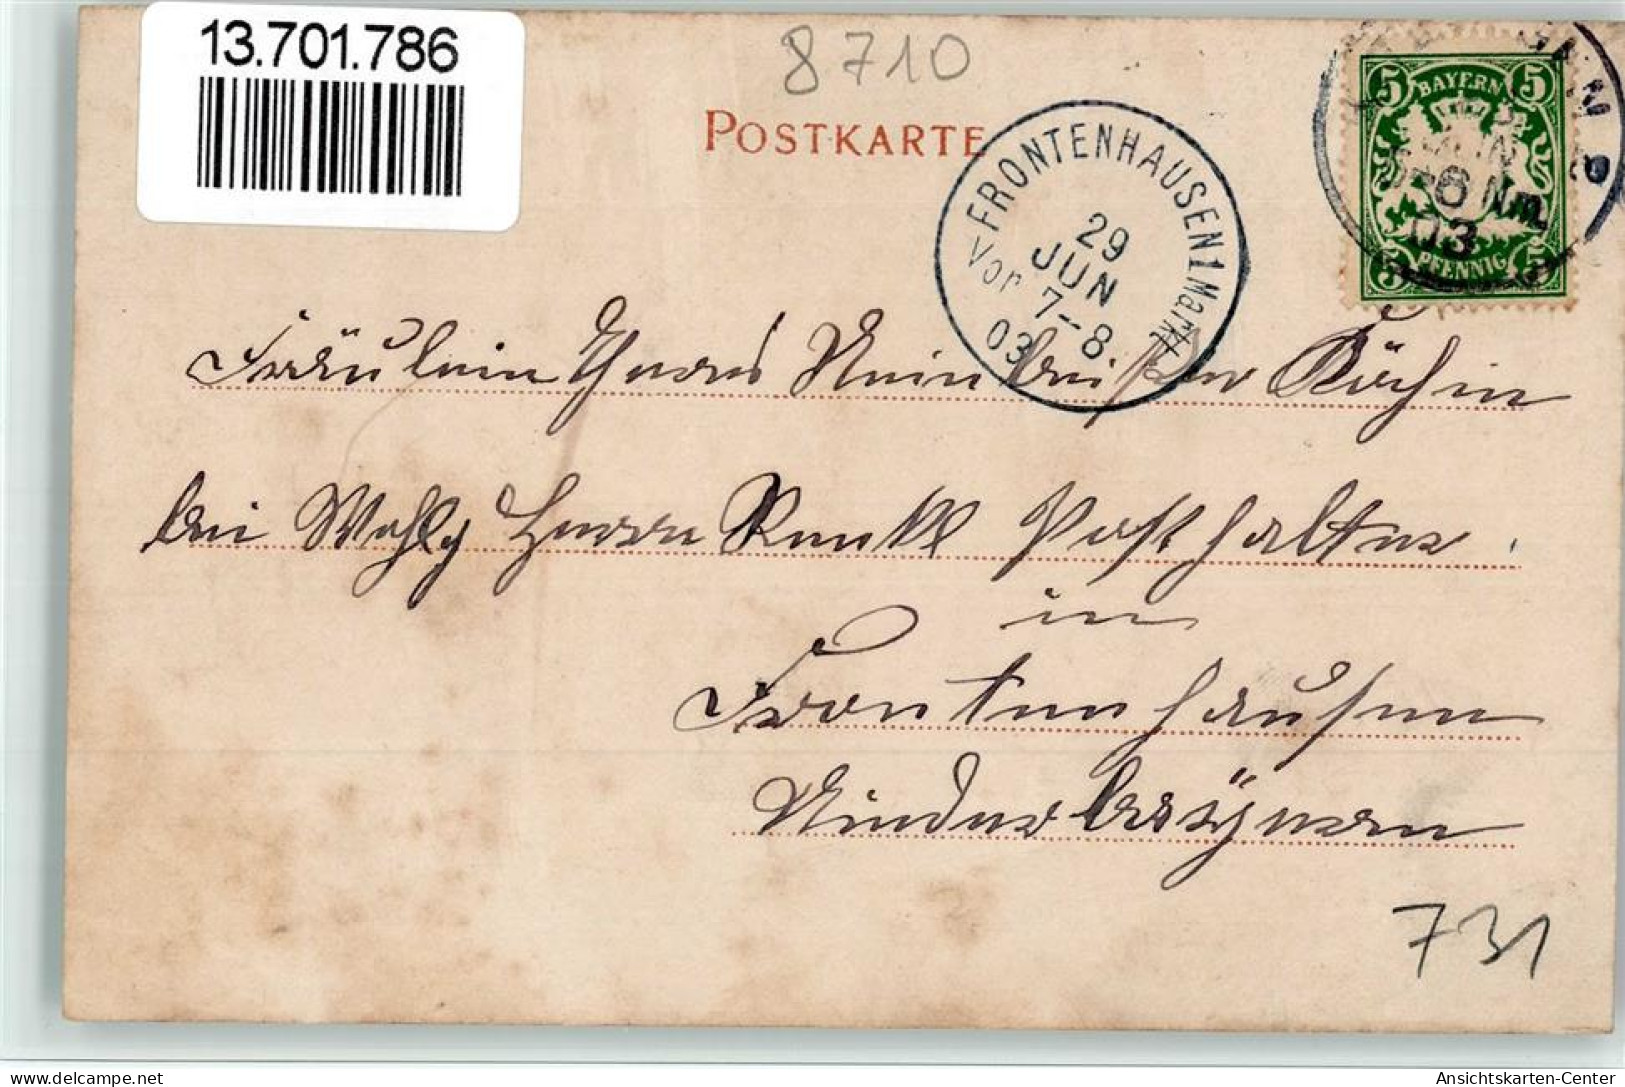 13.701.786
8710
POSTKARTE
FRONTENHAUSEN 1 Markt
29
JUN
Vor 7-8
03
5 BAYERN 5
5-6 Nm.
03
5 PFENNIG 5
Fräulein Köchin
bei Wohlg Herrn Posthalter
in
Frontenhausen
Niederbayern
731
delcampe.net
Ansichtskarten-Center